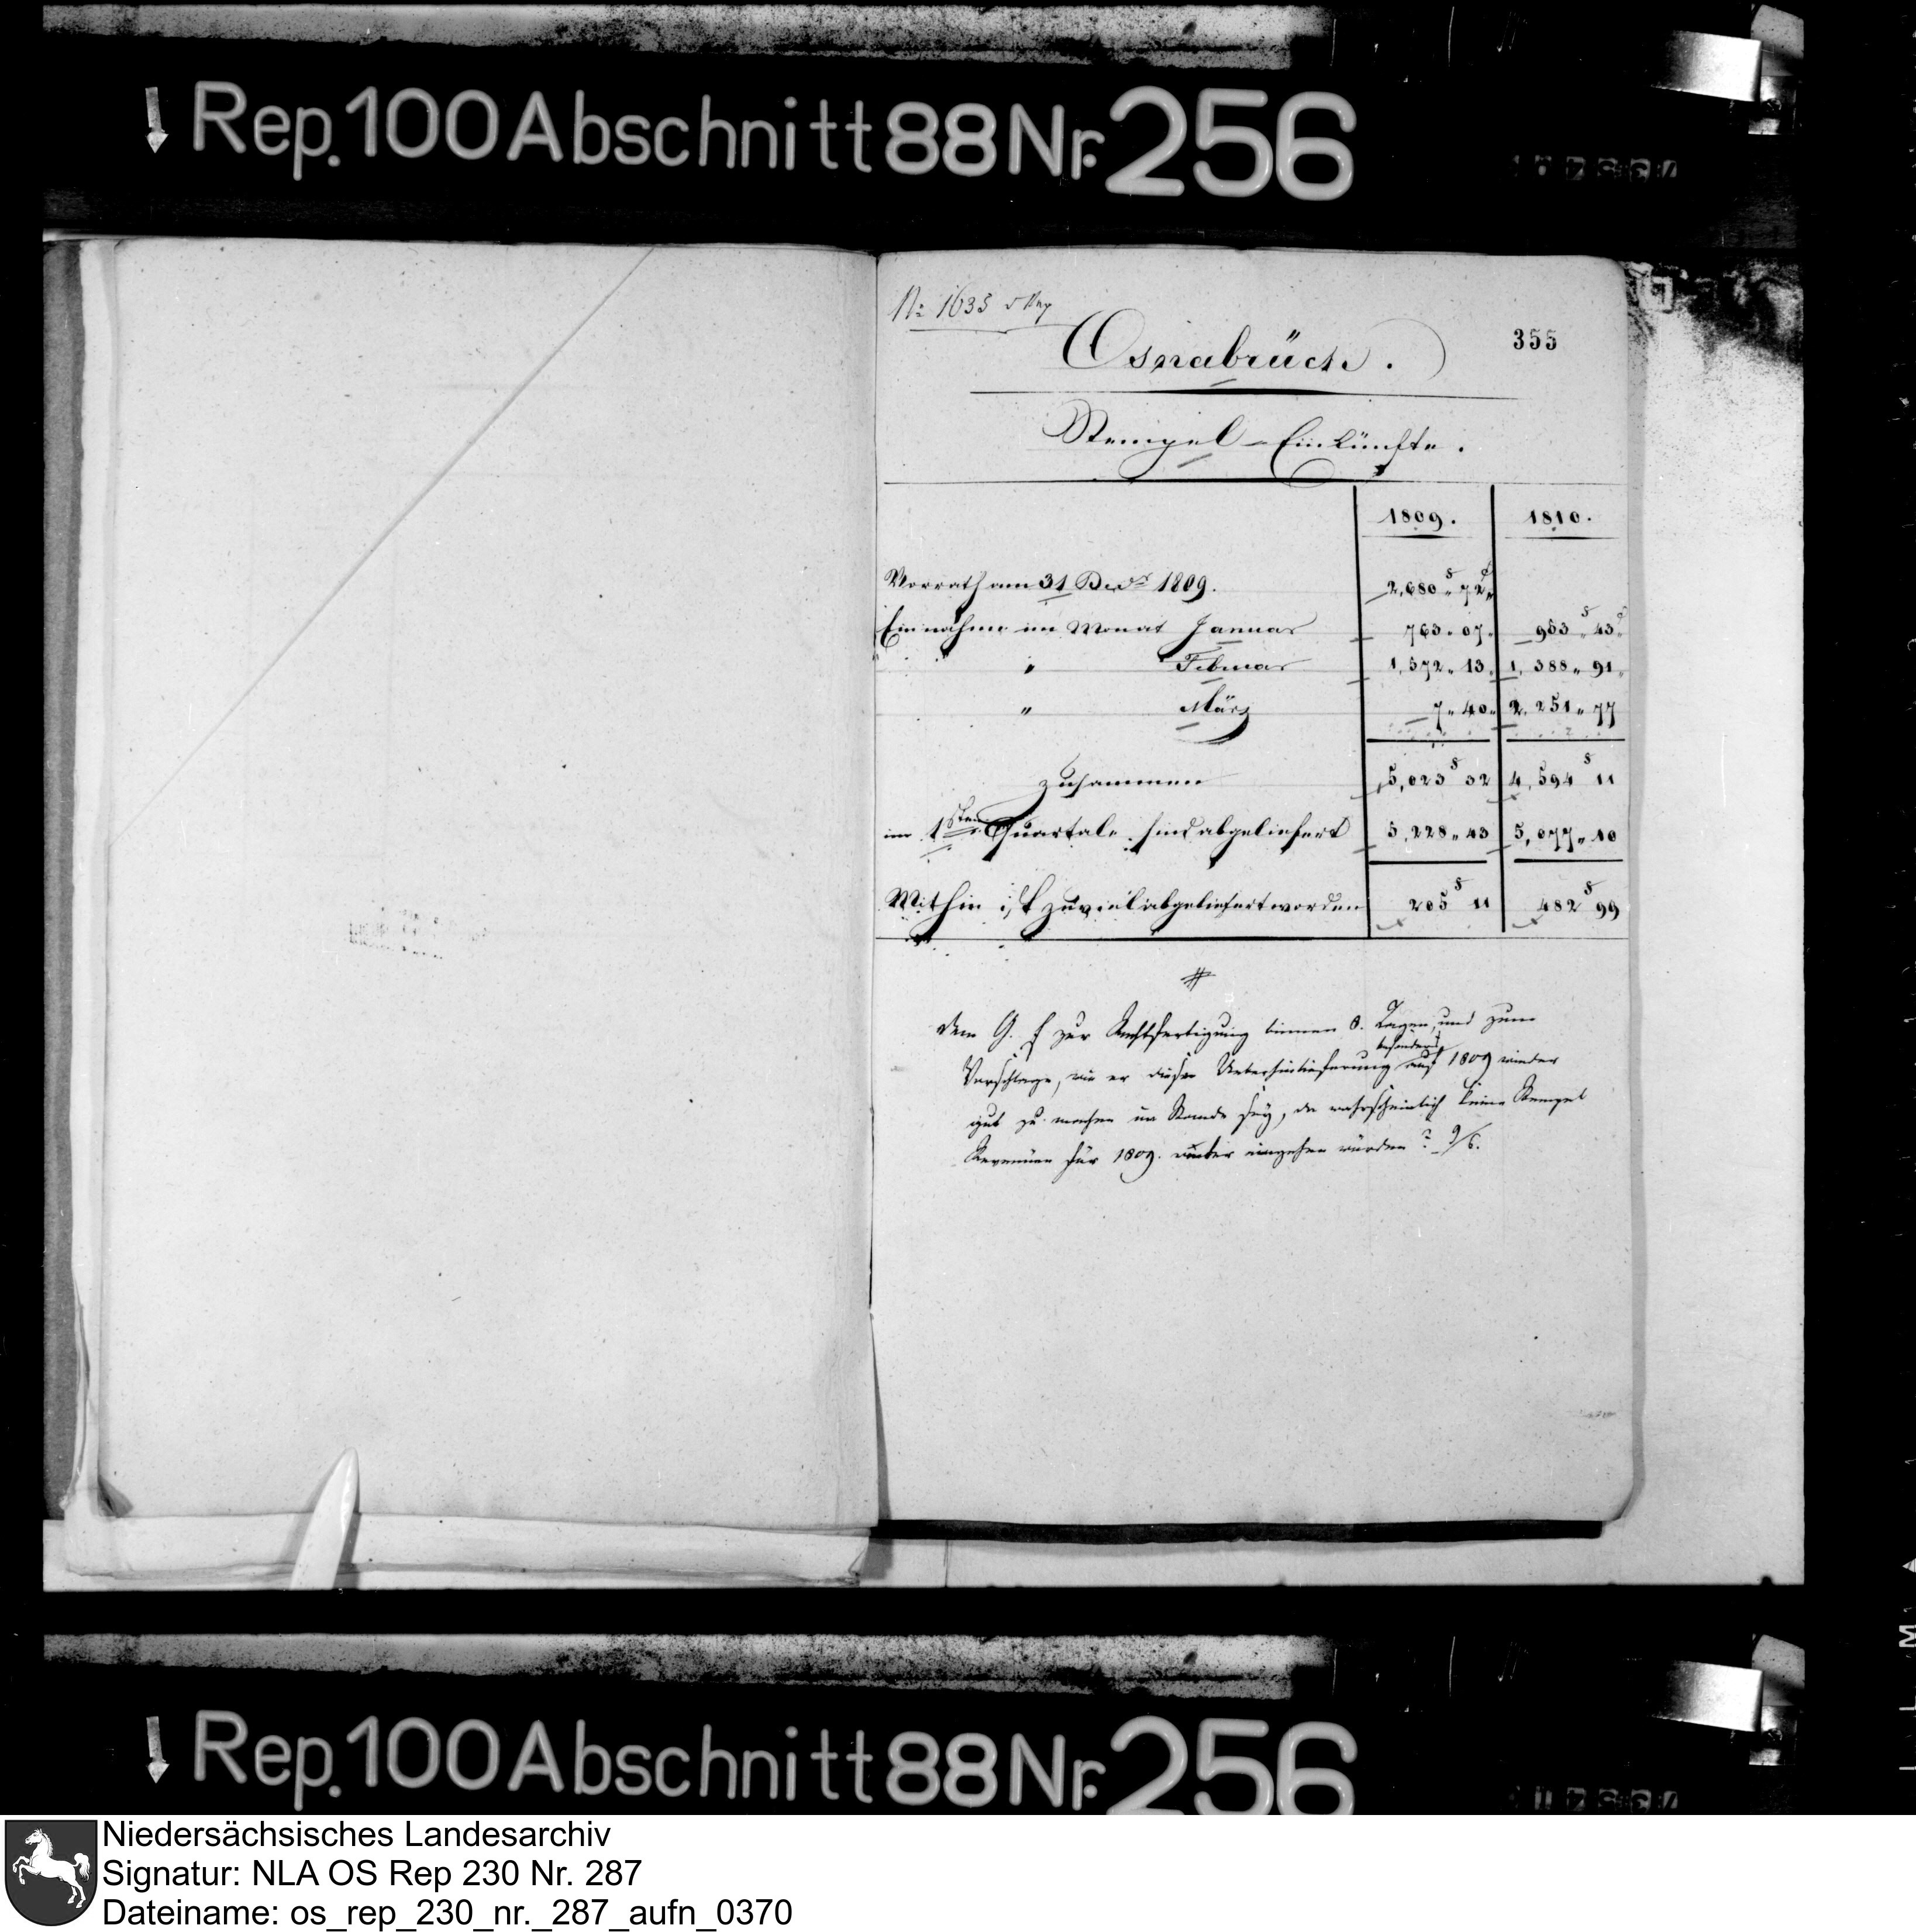 Rep. 100 Abschnitt 88 Nr. 256
No 1635
355
Osnabrück.
Stempel-Einkünfte.
1809. 1810.
Vorrath am 31 Decbr 1809. 2,680 „ 72 „
Einnahme im Monat Januar 763 „ 07 „ 953 „ 43 „
„ „ Februar 1,572 „ 13 „ 1,388 „ 91 „
„ März 7 „ 40 „ 2,251 „ 77
zusammen 5,023 32 4,594 11
im 1sten Quartale sind abgeliefert 5,228 „ 43 5,077 „ 10
Mithin ist zuviel abgeliefert worden 205 11 482 99
#
dem G. E zur Rechtfertigung binnen 8. Tagen, und zum
besonders
Vorschlage, wie er diese Ueberhinlieferung auf 1809 wieder
gut zu machen im Stande sey, da wahrscheinlich keine Stempel
Revenüen für 1809. weiter eingehen würden? 9/6.
Rep. 100 Abschnitt 88 Nr. 256
Niedersächsisches Landesarchiv
Signatur: NLA OS Rep 230 Nr. 287
Dateiname: os_rep_230_nr._287_aufn_0370